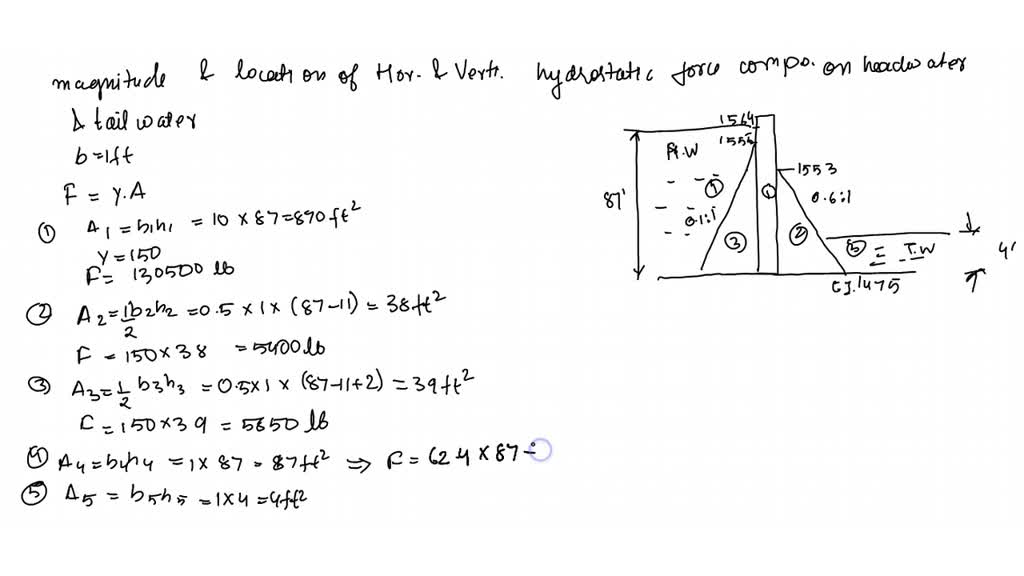 magnitude & location of Hor. & Verti. hydrostatic force compo. on headwater
& tail water
b=1ft
F = γ.A
① A1 = b1h1 = 10 × 87 = 890 ft²
γ = 150
F = 130500 lb
② A2 = 1/2 b2h2 = 0.5 × 1 × (87-11) = 38 ft²
F = 150 × 38 = 5400 lb
③ A3 = 1/2 b3h3 = 0.5 × 1 × (87-11+2) = 39 ft²
F = 150 × 39 = 5650 lb
④ A4 = b4h4 = 1 × 87 = 87 ft² ⇒ F = 62.4 × 87 =
⑤ A5 = b5h5 = 1 × 4 = 4 ft²
1564
1555
H.W
1553
87'
①
0.6:1
0.1:1
③
②
⑤
T.W
4'
EJ.1475